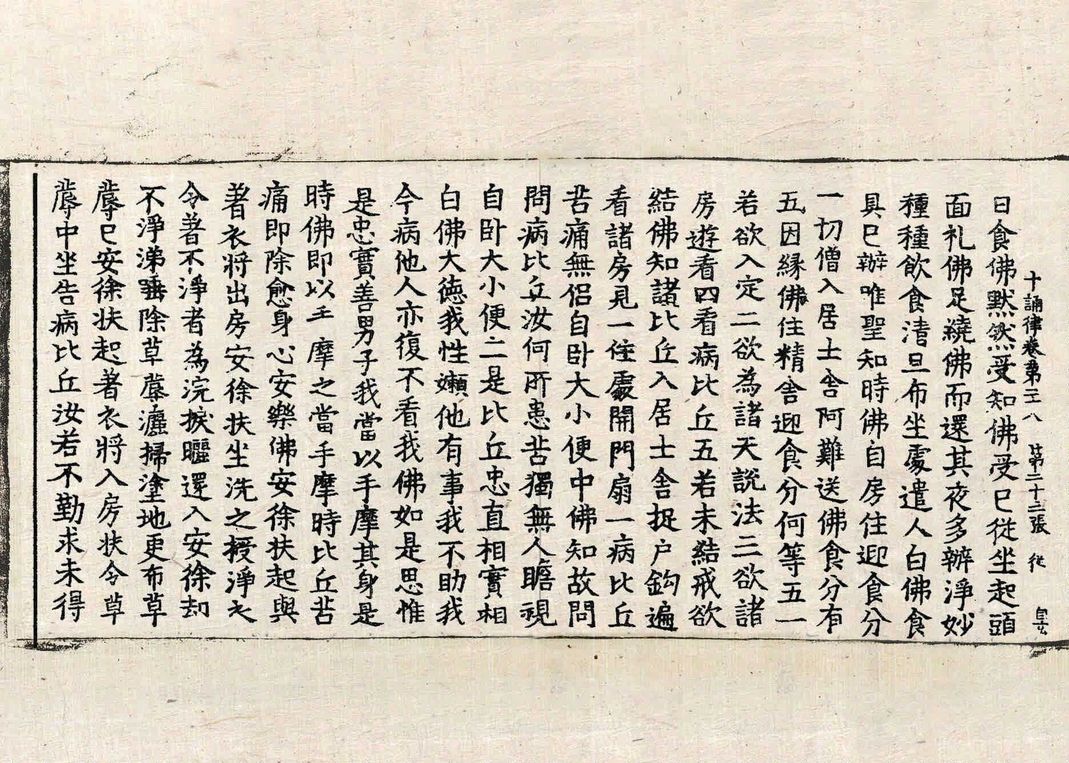 十誦律卷第二十八 第二十三張 從
日食佛黙然受知佛受已從坐起頭
面礼佛足繞佛而還其夜多辦淨妙
種種飲食清旦布坐處遣人白佛食
具已辦唯聖知時佛自房住迎食分
一切僧入居士舍阿難送佛食分有
五因縁佛住精舎迎食分何等五一
若欲入定二欲為諸天說法三欲諸
房遊看四看病比丘五若未結戒欲
結佛知諸比丘入居士舍捉户鈎遍
看諸房見一住處開門扇一病比丘
苦痛無侣自卧大小便中佛知故問
問病比丘汝何所患苦獨無人瞻視
自卧大小便二是比丘忠直相實相
白佛大徳我性嬾他有事我不助我
今病他人亦復不看我佛如是思惟
是忠實善男子我當以手摩其身是
時佛即以手摩之當手摩時比丘苦
痛即除愈身心安樂佛安徐扶起與
著衣將出房安徐扶坐洗之授淨衣
令著不淨者為浣捩曬還入安徐却
不淨涕唾除草蓐灑掃塗地更布草
蓐已安徐扶起著衣將入房扶令草
蓐中坐告病比丘汝若不勤求未得